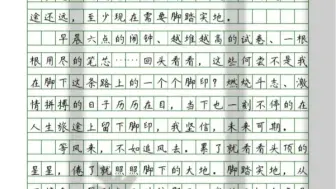 途还远，至少现在需要脚踏实地。
早晨六点的闹钟、越堆越高的试卷、一根
根用尽的笔芯……回头看看，这些何尝不是我
在脚下这条路上的一个个脚印？燃烧斗志、激
情拼搏的日子历历在目，当下也一刻不停的在
人生旅途上留下脚印，我坚信，未来可期。
等风来，不如追风去。累了就看看头顶的
星星，倦了就照照脚下的大地。脚踏实地，从